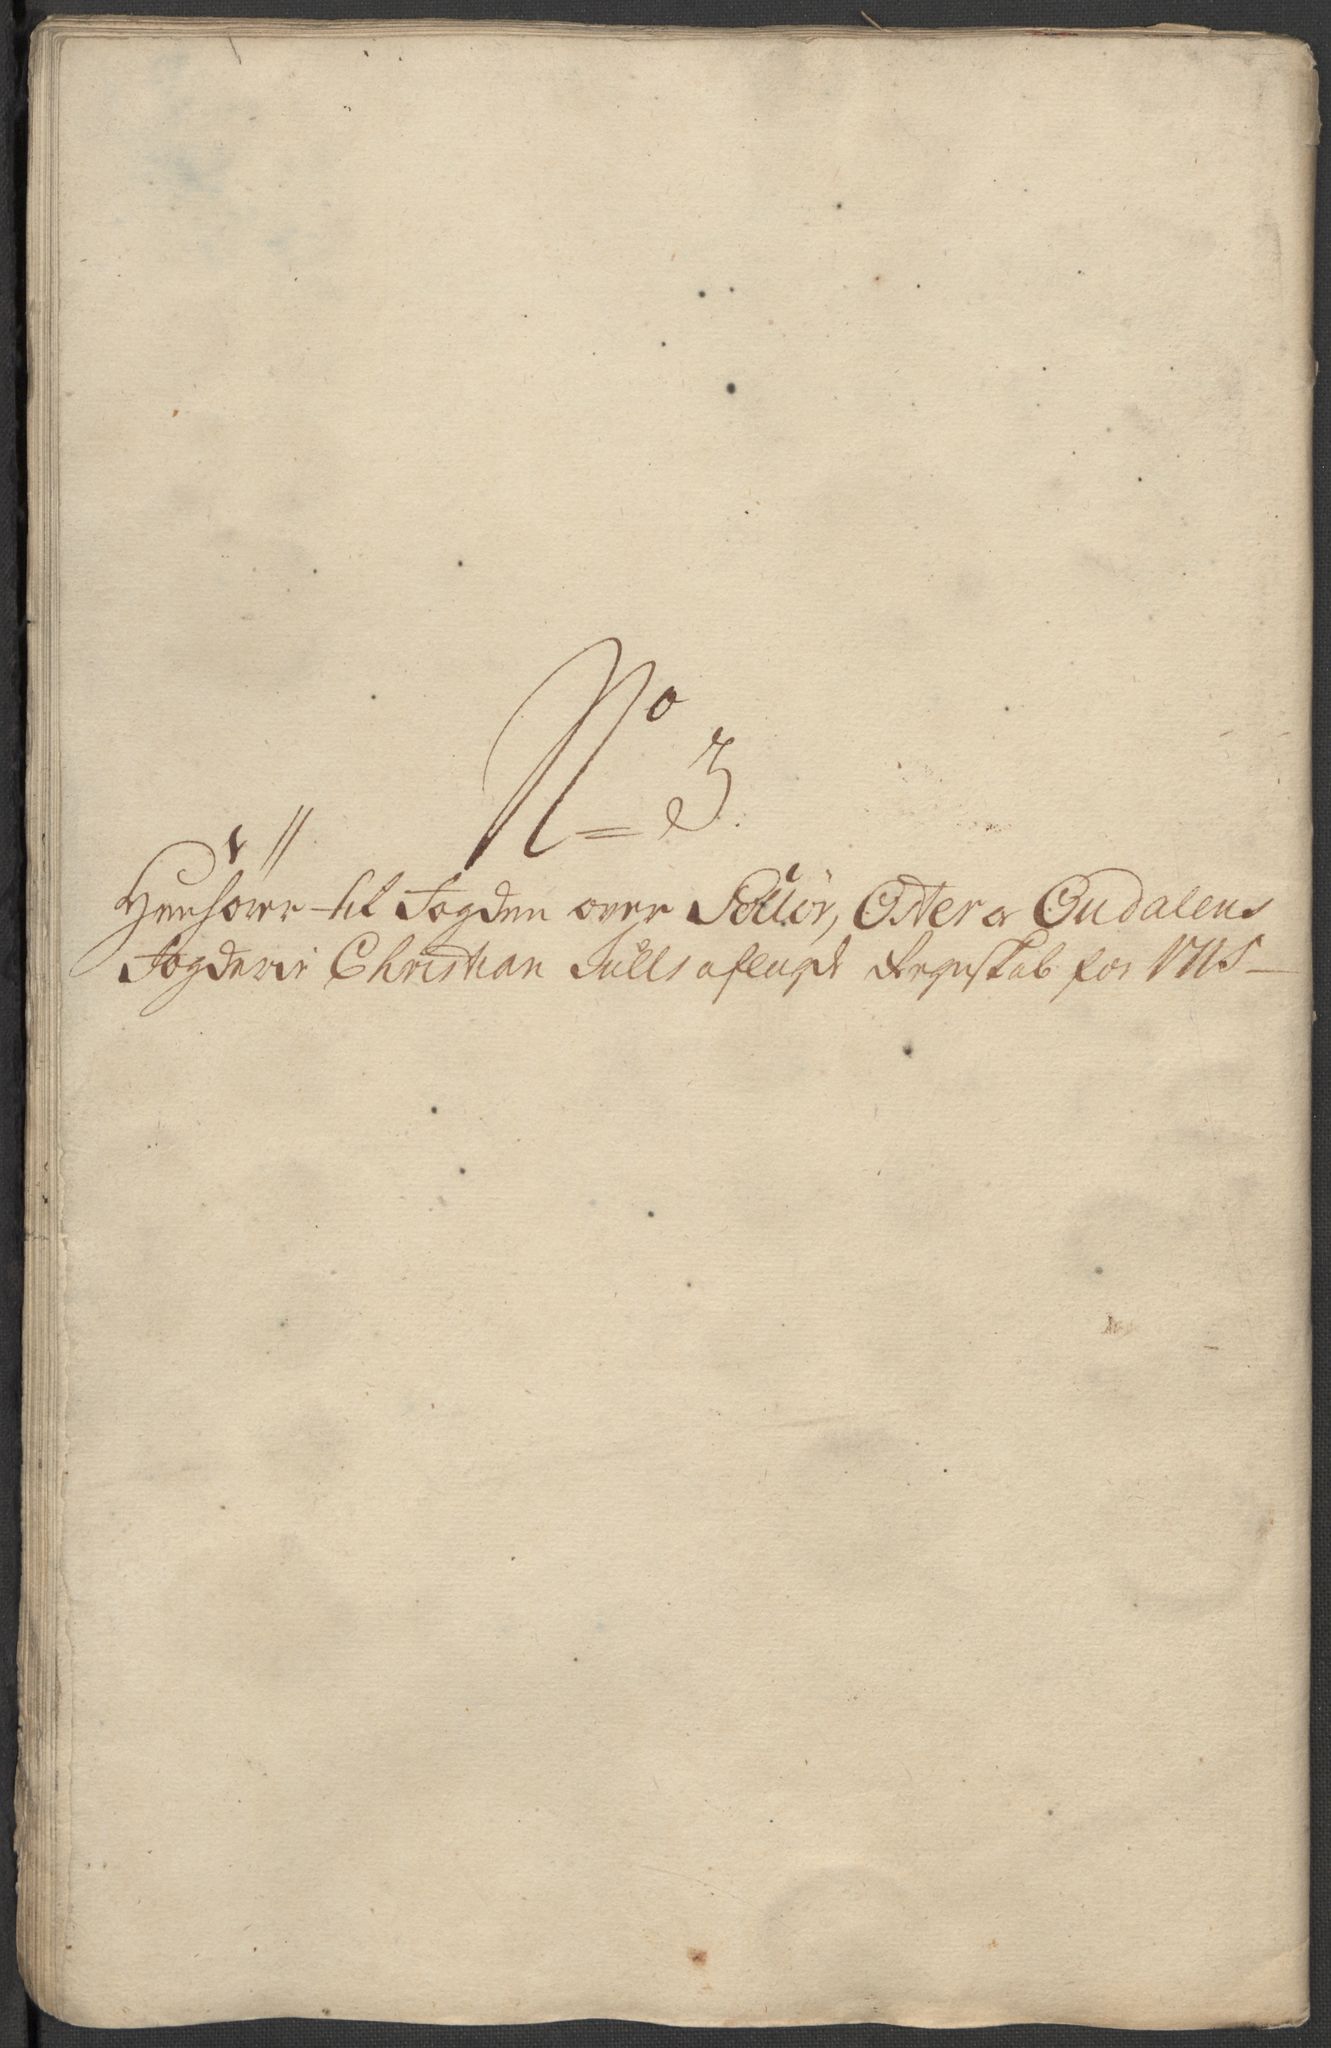 No 3
Henhører til Fogden over Soløer, Øster og Oudalens
Fogderie Christian Sills aflagde Regnskab for 1715